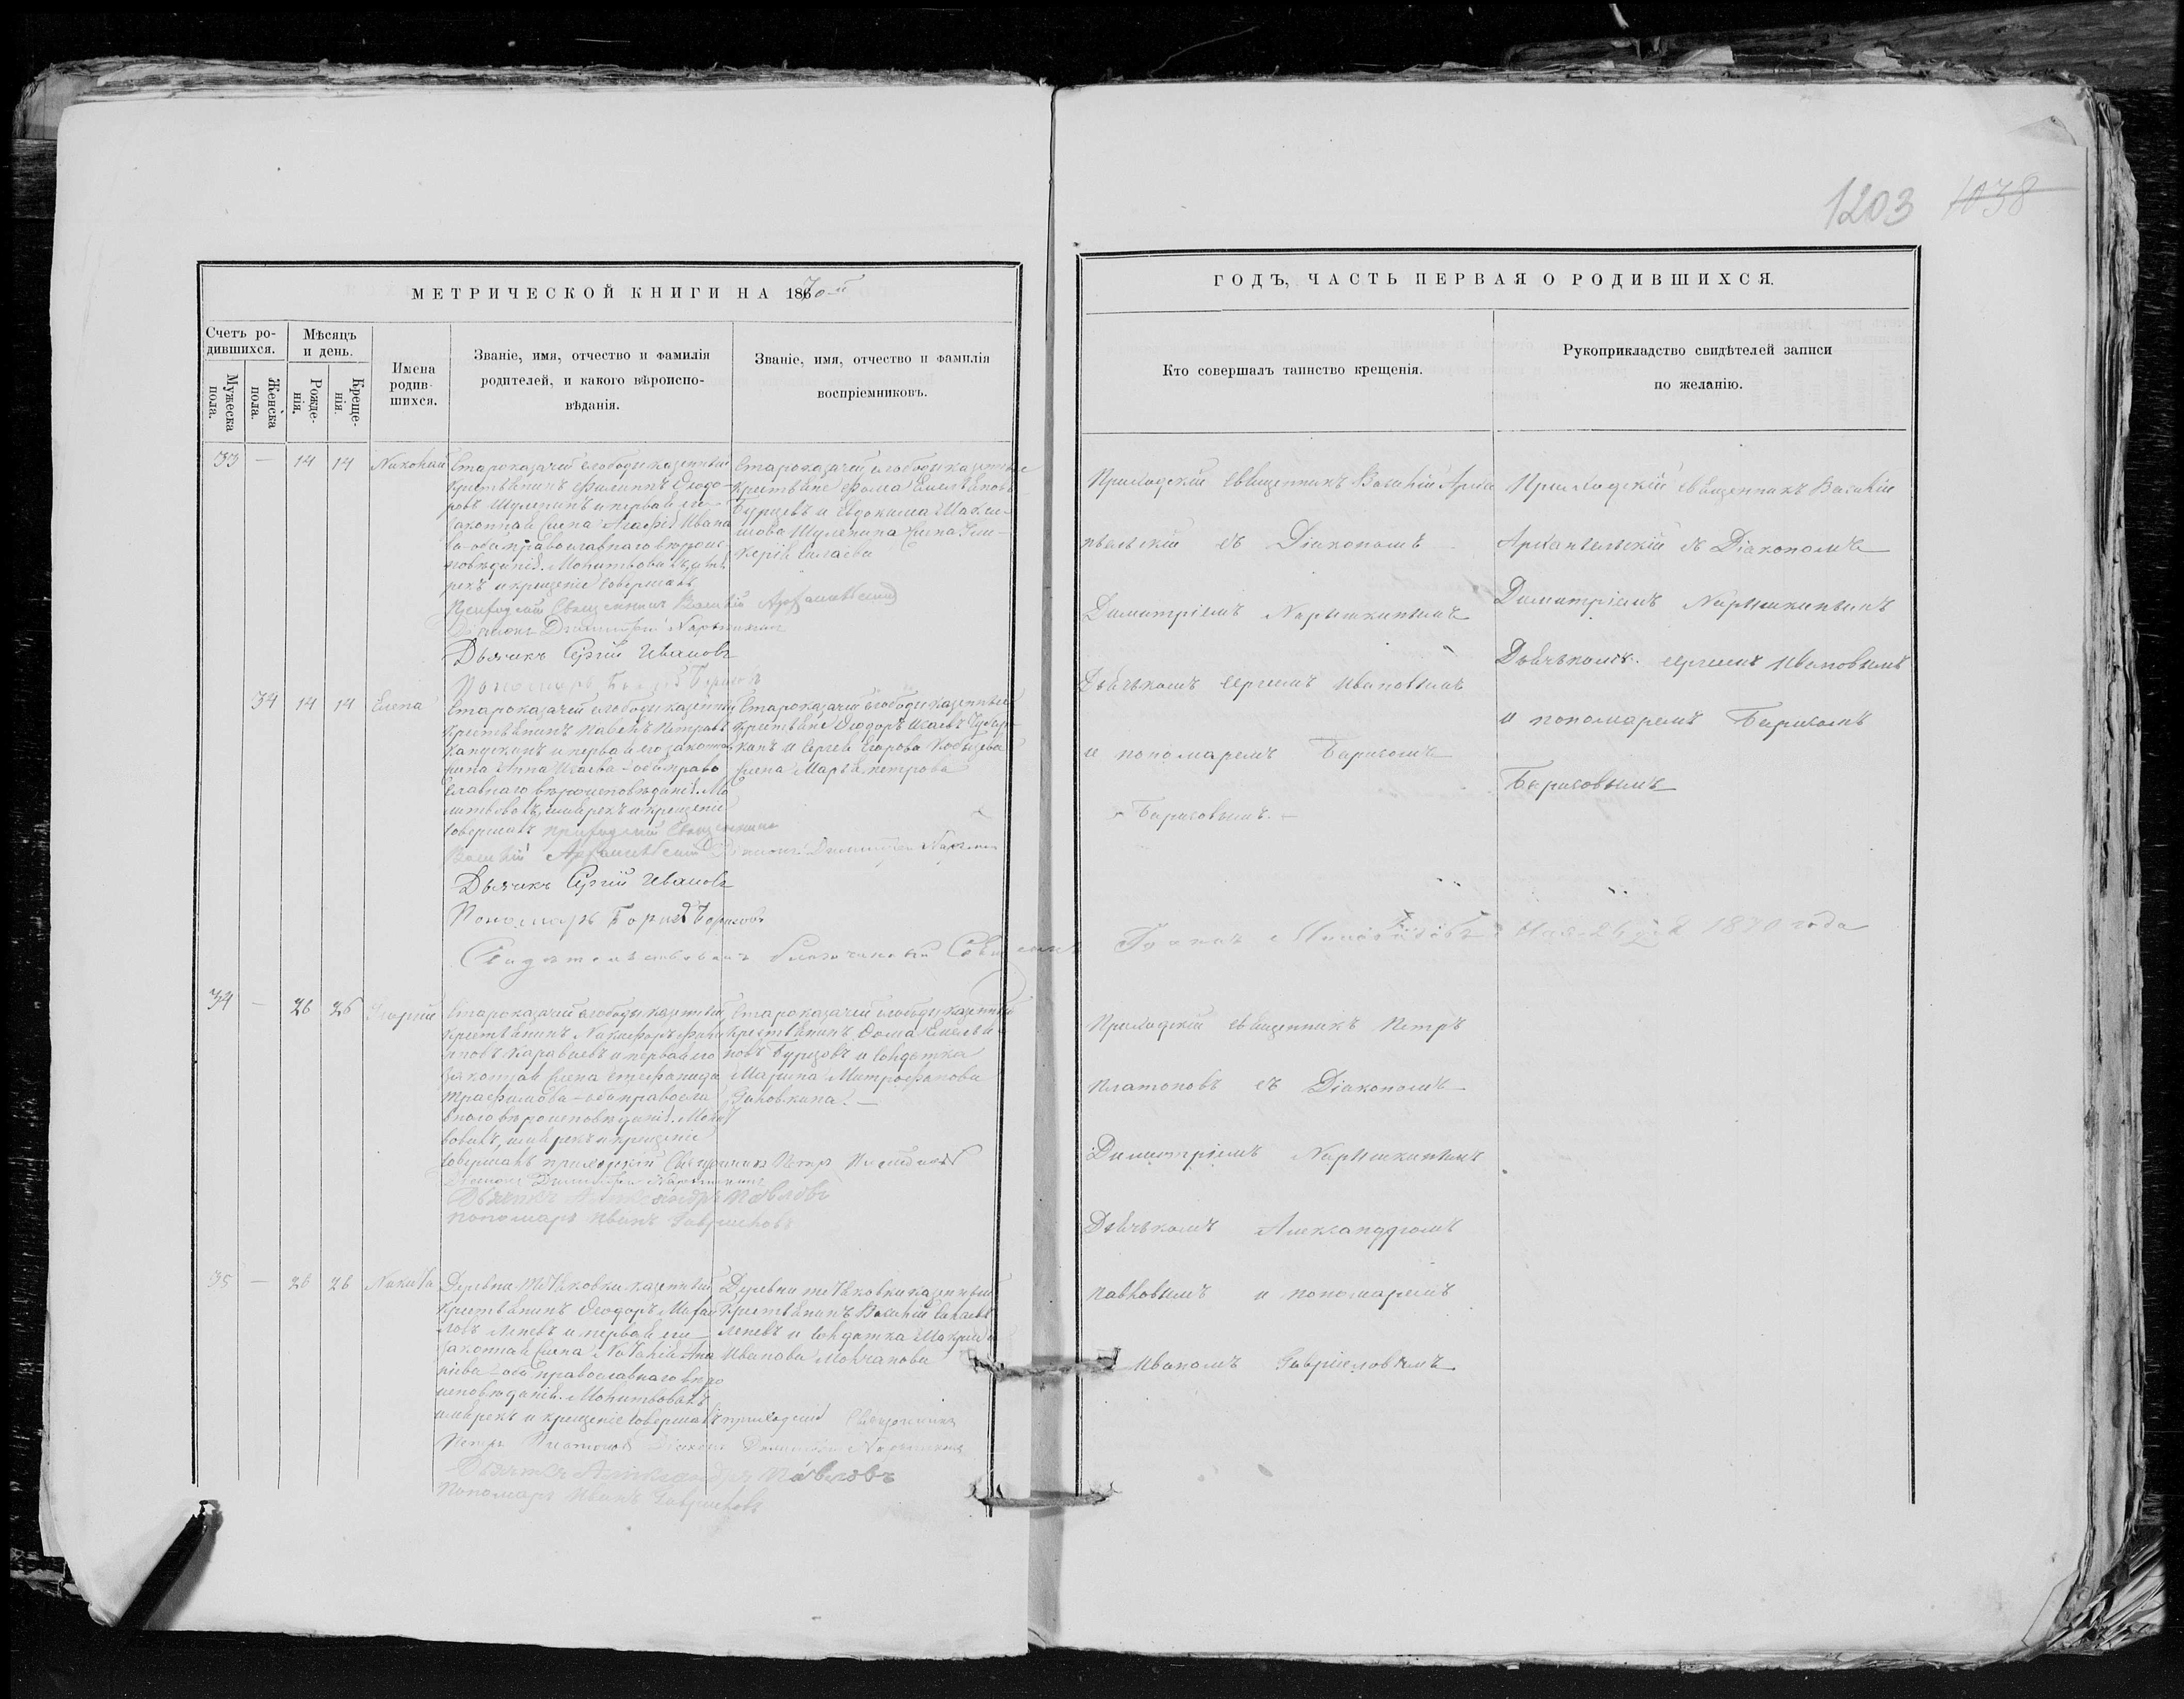 1203 1038
МЕТРИЧЕСКОЙ КНИГИ НА 1870й
ГОДЪ, ЧАСТЬ ПЕРВАЯ О РОДИВШИХСЯ.
Счетъ ро-
дившихся.
Мужеска
пола.
Женска
пола.
Мѣсяцъ
и день.
Рожде-
нія.
Креще-
нія.
Имена
родив-
шихся.
Званіе, имя, отчество и фамилія
родителей, и какого вѣроиспо-
вѣданія.
Званіе, имя, отчество и фамилія
воспріемниковъ.
Кто совершалъ таинство крещенія.
Рукоприкладство свидѣтелей записи
по желанію.
33 — 14 14 Николай
Староказачей слободы казенный
крестьянинъ Филиппъ Ѳеодо-
ровъ и первая его
законная жена Агафія Ивано
ва оба православнаго вѣроис-
повѣданія. Молитвовалъ, имя
рекъ и крещеніе совершалъ
Приходскій Священникъ Василій Архангельскій
Діаконъ Димитрій Нарышкинъ
Дьячикъ Сергій Ивановъ
Пономарь Борисъ Борисовъ
Староказачей слободы казенные
крестьяне Фома Емельяновъ
Бурцевъ и Евдокима
жена
Приходскій священникъ Василій Арха
нгельскій съ Діакономъ
Димитріемъ Нарышкинымъ
Дьячькомъ Сергіемъ Ивановымъ
и пономаремъ Борисомъ
Борисовымъ. —
Приходскій священникъ Василій
Архангельскій съ Діакономъ
Димитріемъ Нарышкинымъ
Дьячькомъ Сергіемъ Ивановымъ
и пономаремъ Борисомъ
Борисовымъ
34 14 14 Елена
Староказачей слободы казенный
крестьянинъ Павелъ Петровъ
и первая его законная
жена Анна Исаева оба право
славнаго вѣроисповѣданія. Мо
литвовалъ, имярекъ и крещеніе
совершалъ приходскій Священникъ
Василій Архангельскій Діаконъ Димитрій Нарышкинъ
Дьячикъ Сергій Ивановъ
Пономарь Борисъ Борисовъ
Староказачей слободы казенный
крестьяне Ѳеодоръ Исаевъ
и Сергея Егорова
жена Марья Петрова
Свидетельствовалъ благочинный Священникъ
1870 года
34 — 26 26 Георгій
Староказачей слободы казенный
крестьянинъ Никифоръ Фили
пповъ Караваевъ и первая его
законная жена Стефанида
Трофимова оба правосла
внаго вѣроисповѣданія. Молит
вовалъ, имя рекъ и крещеніе
совершалъ приходскій Священникъ Петръ Платоновъ
Діаконъ Димитрій Нарышкинъ
Дьячекъ Александръ Павловъ
пономарь Иванъ Гавриловъ
Староказачей слободы казенный
крестьянинъ Фома Емелья
новъ Бурцовъ и солдатка
Марина Митрофанова
Приходскій священникъ Петръ
Платоновъ съ Діакономъ
Димитріемъ Нарышкинымъ
Дьячькомъ Александромъ
Павловымъ и пономаремъ
Иваномъ Гавриловымъ
35 — 26 26 Никита
Деревни казенный
крестьянинъ Ѳеодоръ Михаи
ловъ и первая его
законная жена Наталія
оба православнаго вѣро
исповѣданія. Молитвовалъ
имярекъ и крещеніе совершалъ приходскій Священникъ
Петръ Платоновъ Діаконъ Димитрій Нарышкинъ
Дьячекъ Александръ Павловъ
Пономарь Иванъ Гавриловъ
Деревни казенный
крестьянинъ Василій
и солдатка
Иванова